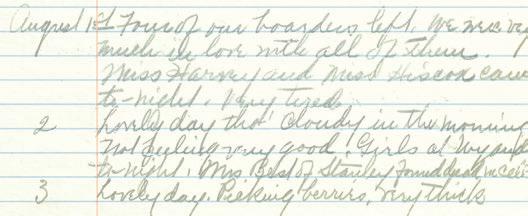 August 1st Four of our boarders left. We were very
much in love with all of them.
Miss Harvey and Miss Hiscox came
to-night. Very tired.
2 Lovely day tho' cloudy in the morning
Not feeling very good. Girls at
to-night. Mrs Best of Stanley found dead in
3 Lovely day. Picking berries, very thick